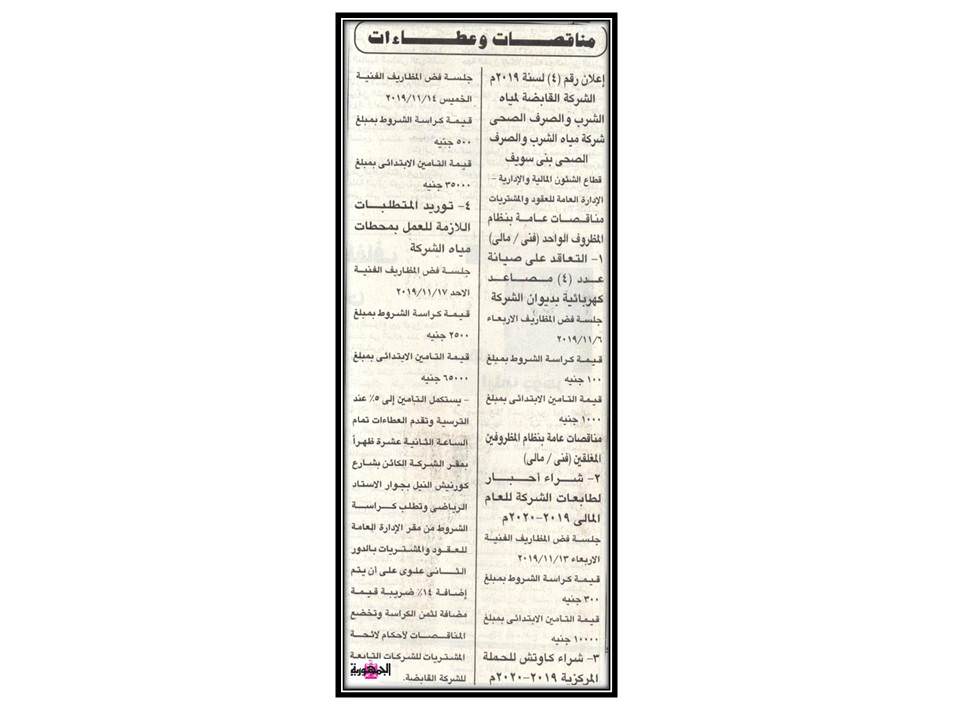 مناقصـــات وعطـــاءات
إعلان رقم (٤) لسنة ٢٠١٩م
الشركة القابضة لمياه
الشرب والصرف الصحى
شركة مياه الشرب والصرف
الصحى بنى سويف
قطاع الشئون المالية والإدارية -
الإدارة العامة للعقود والمشتريات
مناقصات عامة بنظام
المظروف الواحد (فنى / مالى)
١- التعاقد على صيانة
عدد (٤) مصاعد
كهربائية بديوان الشركة
جلسة فض المظاريف الاربعاء
٢٠١٩/١١/٦
قيمة كراسة الشروط بمبلغ
١٠٠ جنيه
قيمة التامين الابتدائى بمبلغ
١٠٠٠ جنيه
مناقصات عامة بنظام المظروفين
المغلقين (فنى / مالى)
٢- شراء أحبار
لطابعات الشركة للعام
المالى ٢٠١٩-٢٠٢٠م
جلسة فض المظاريف الفنية
الاربعاء ٢٠١٩/١١/١٣
قيمة كراسة الشروط بمبلغ
٣٠٠ جنيه
قيمة التامين الابتدائى بمبلغ
١٠٠٠٠ جنيه
٣- شراء كاوتش للحملة
المركزية ٢٠١٩-٢٠٢٠م
جلسة فض المظاريف الفنية
الخميس ٢٠١٩/١١/١٤
قيمة كراسة الشروط بمبلغ
٥٠٠ جنيه
قيمة التامين الابتدائى بمبلغ
٣٥٠٠٠ جنيه
٤- توريد المتطلبات
اللازمة للعمل بمحطات
مياه الشركة
جلسة فض المظاريف الفنية
الاحد ٢٠١٩/١١/١٧
قيمة كراسة الشروط بمبلغ
٢٥٠٠ جنيه
قيمة التامين الابتدائى بمبلغ
٦٥٠٠٠ جنيه
- يستكمل التامين إلى ٥٪ عند
الترسية وتقدم العطاءات تمام
الساعة الثانية عشرة ظهراً
بمقر الشركة الكائن بشارع
كورنيش النيل بجوار الاستاد
الرياضى وتطلب كراسة
الشروط من مقر الإدارة العامة
للعقود والمشتريات بالدور
الثانى علوى على أن يتم
إضافة ١٤٪ ضريبة قيمة
مضافة لثمن الكراسة وتخضع
المناقصات لأحكام لائحة
المشتريات للشركات التابعة
للشركة القابضة.
الجمهورية